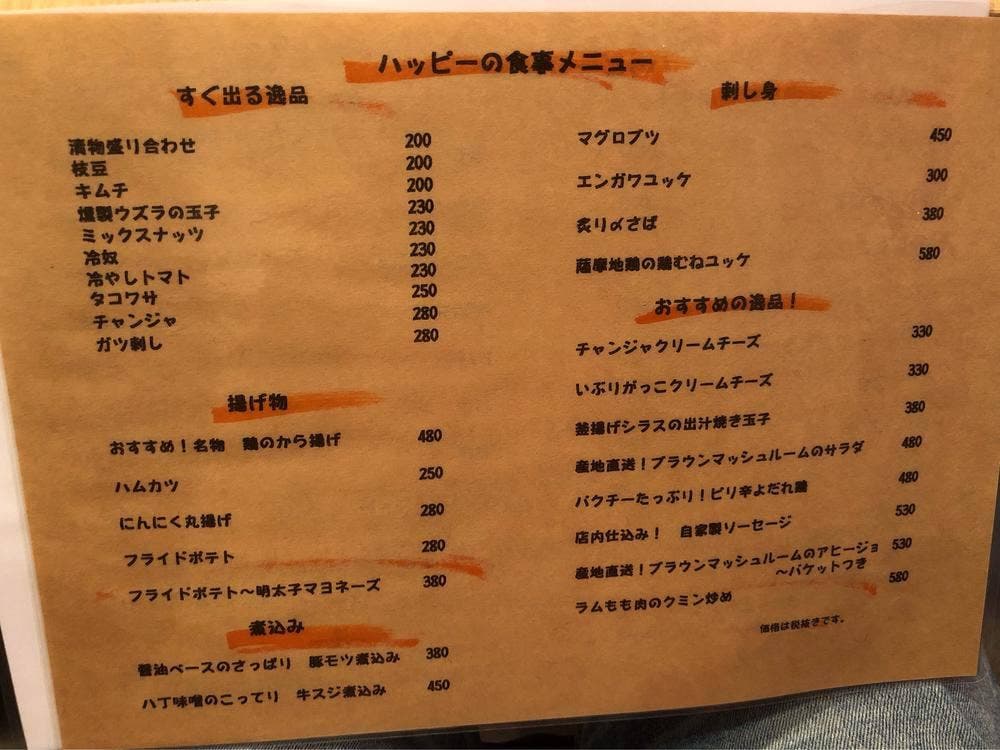 ハッピーの食事メニュー
すぐ出る逸品
漬物盛り合わせ 200
枝豆 200
キムチ 200
燻製ウズラの玉子 230
ミックスナッツ 230
冷奴 230
冷やしトマト 230
タコワサ 250
チャンジャ 280
ガツ刺し 280
揚げ物
おすすめ！名物 鶏のから揚げ 480
ハムカツ 250
にんにく丸揚げ 280
フライドポテト 280
フライドポテト～明太子マヨネーズ 380
煮込み
醤油ベースのさっぱり 豚モツ煮込み 380
八丁味噌のこってり 牛スジ煮込み 450
刺し身
マグロブツ 450
エンガワユッケ 300
炙り〆さば 380
薩摩地鶏の鶏むねユッケ 580
おすすめの逸品！
チャンジャクリームチーズ 330
いぶりがっこクリームチーズ 330
釜揚げシラスの出汁焼き玉子 380
産地直送！ブラウンマッシュルームのサラダ 480
パクチーたっぷり！ピリ辛よだれ鶏 480
店内仕込み！ 自家製ソーセージ 530
産地直送！ブラウンマッシュルームのアヒージョ 530
～バケットつき
ラムもも肉のクミン炒め 580
価格は税抜きです。